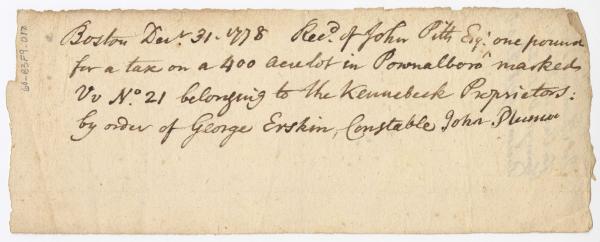 Boston Decr. 31-1778 Recd. of John Pitts Esqr. one pound
for a tax on a 400 acre lot in Pownalboro' marked
Vv No. 21 belonging to the Kennebeck Proprietors:
by order of George Erskin, Constable John Plumer
64-83F9.017